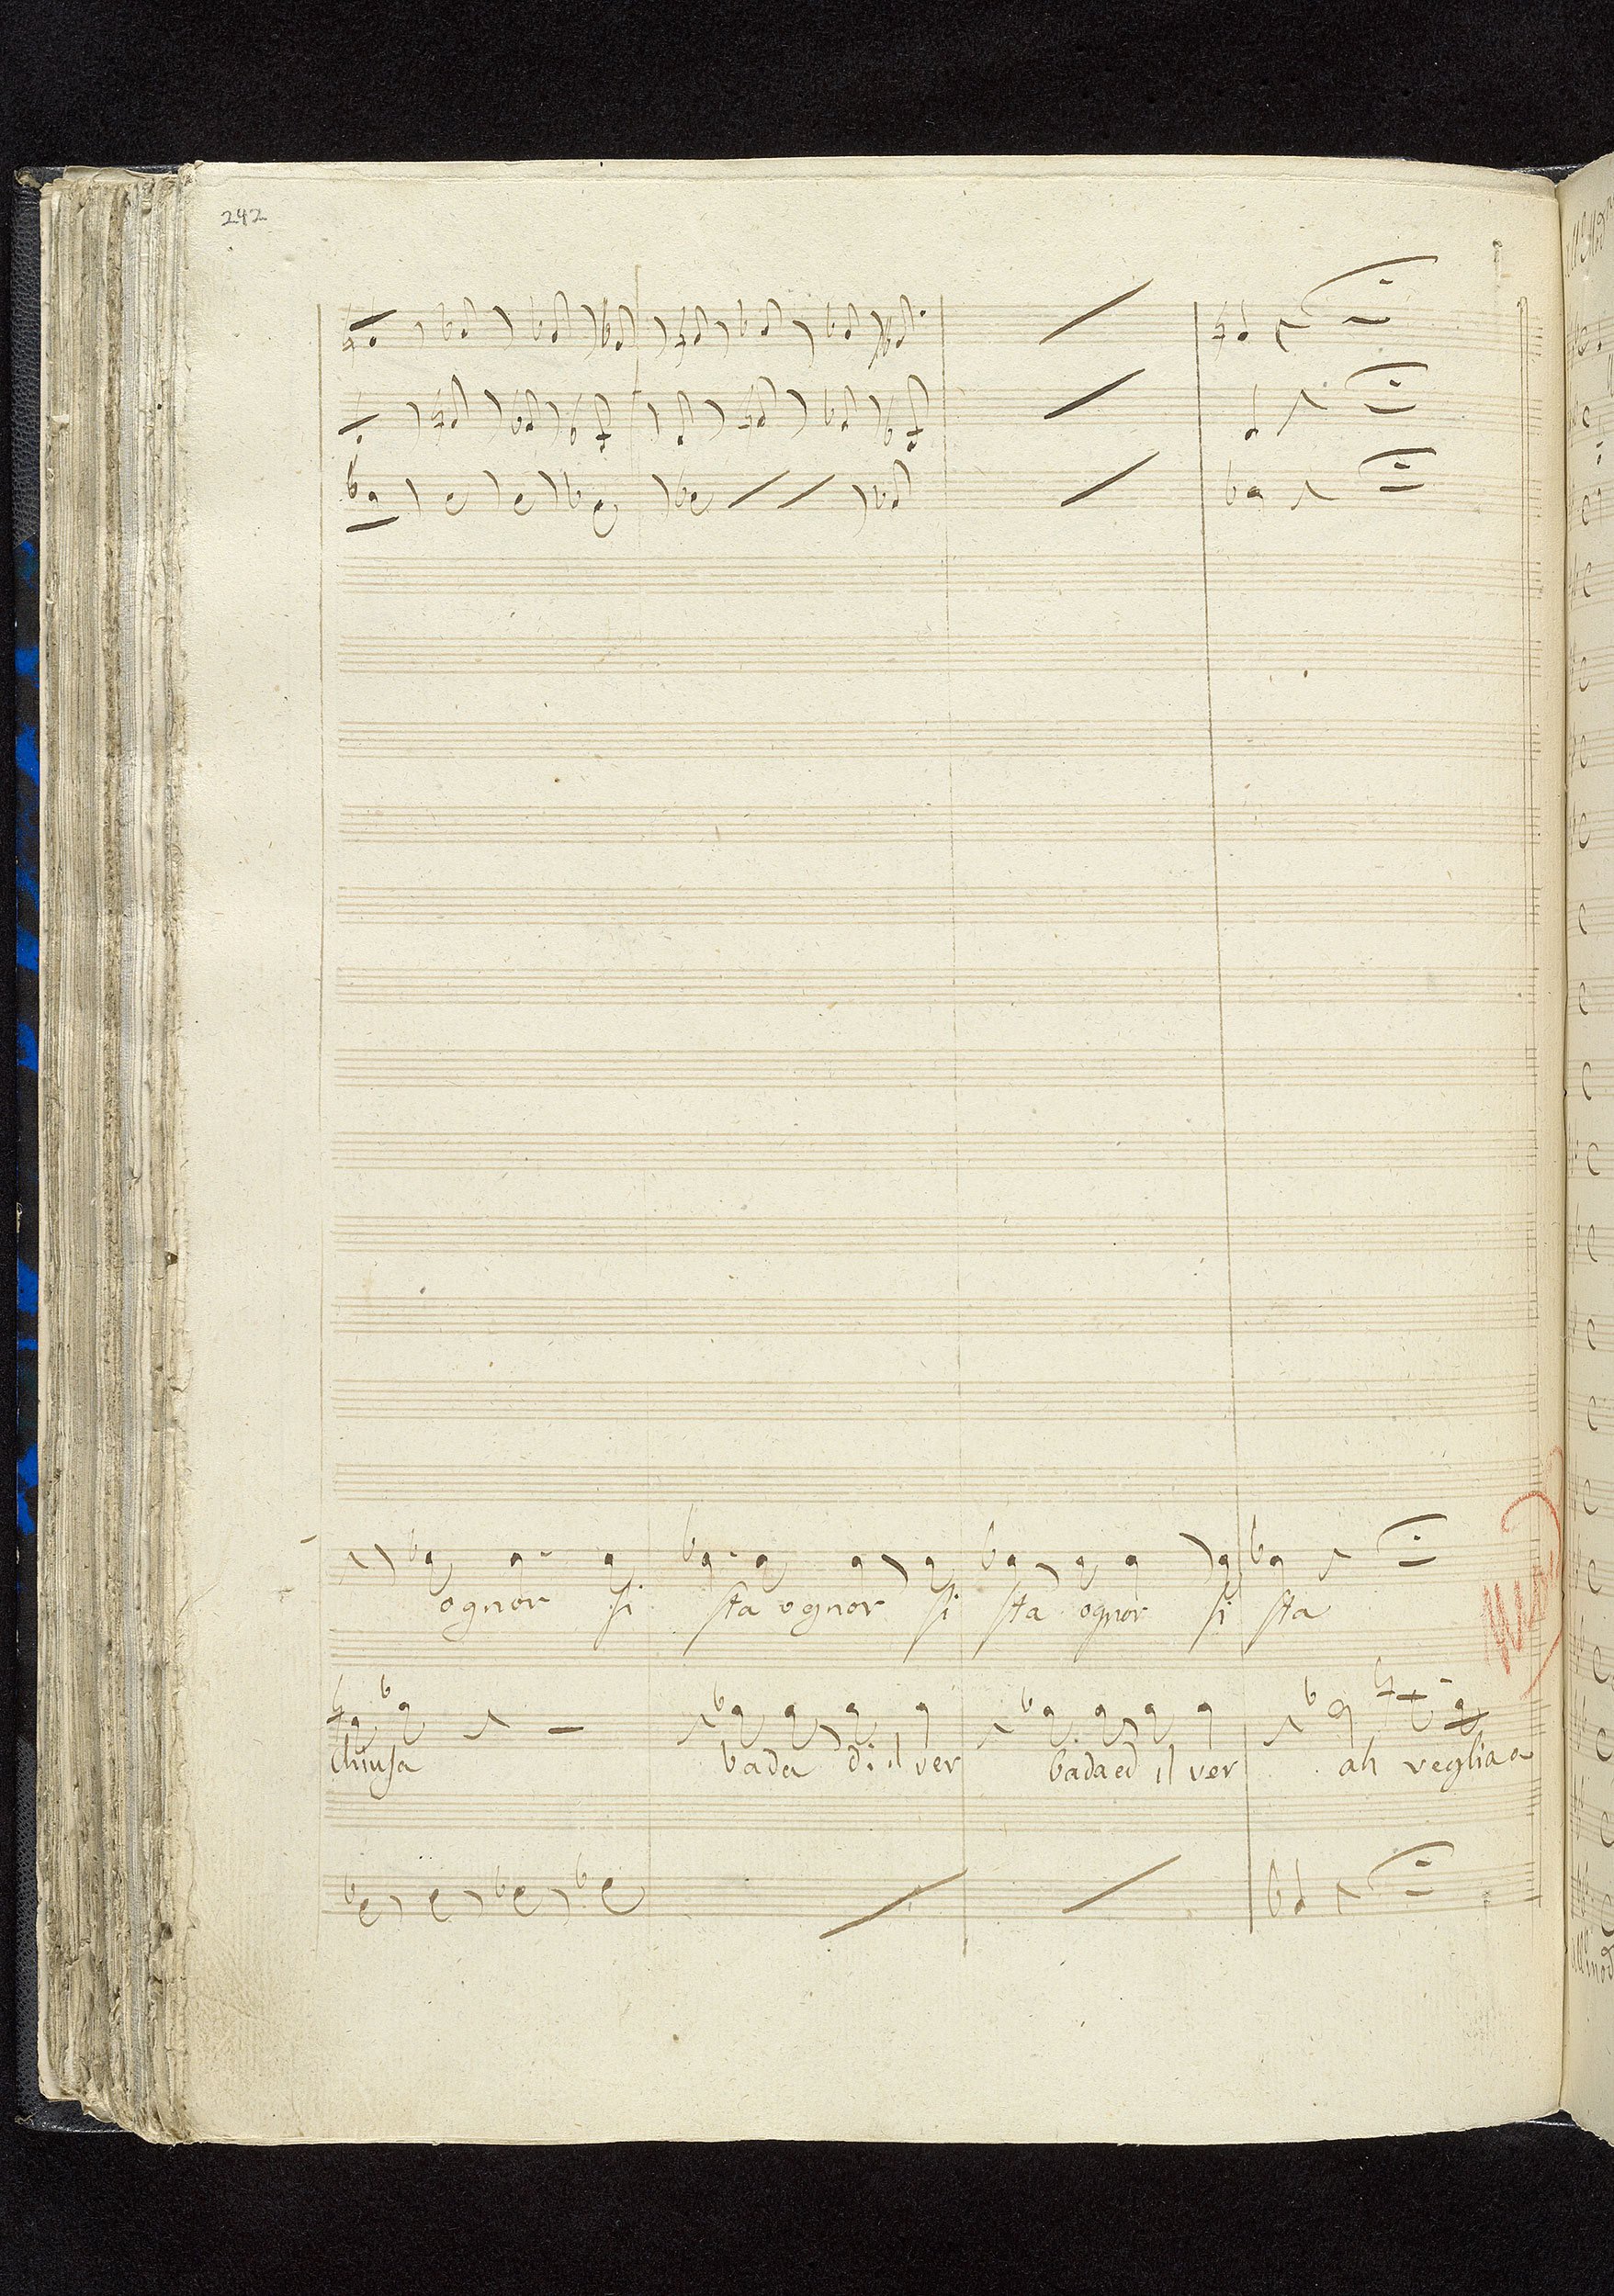 242
ognor si sta ognor si sta ognor si sta
chiusa bada di il ver bada ed il ver ah veglia a